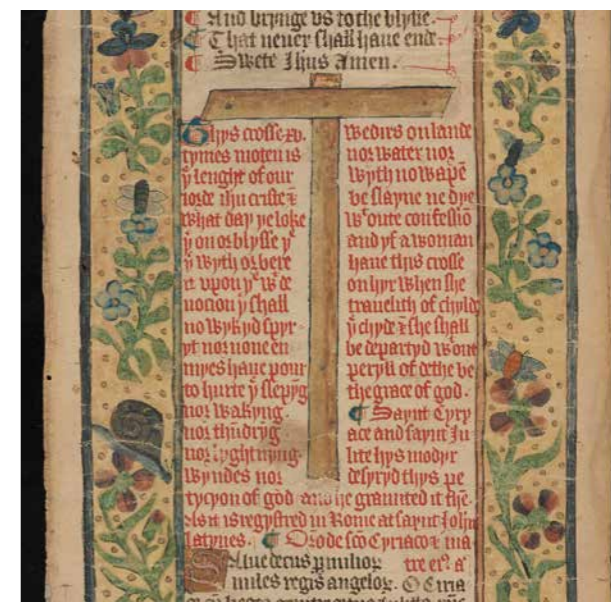 ¶ And brynge vs to the blysse.
¶ That neuer shall haue ende.
¶ Swete Ihus Amen.
Thys crosse xv.
tymes moten is
ẏ lenght of our
lorde ihu criste &
what day ye loke
ẏ on or blysse yͭ
ẏ wyth or bere
it vpon yͧ wͭ de
uocion ẏ shall
no wykyd spyr
yt nor none en
myes haue pour
to hurte ẏ slepyg̃
nor wakyng.
nor thūdryg̃
nor lyghtnyng.
wyndes nor
wedirs on lande
nor water nor
wyth no wapē
be slayne ne dye
wͭoute confessiō
and yf a woman
haue thys crosse
on hyr when she
trauelith of chylde
ẏ chyde & she shall
be departyd wͭout
peryll of dethe be
the grace of god.
¶ Saynt Cyry
ace and saynt Ju
lite hys modyr
desyryd thys pe
tycyon of god and he graunted it the.
als it is regystred in Rome at saynt John
latynes. ¶ Or͂o de sc͂o Cyriaco & ma
Salue decus ꝑuulor͂ tre ei? a͂
miles regis angelor͂. O Ciria